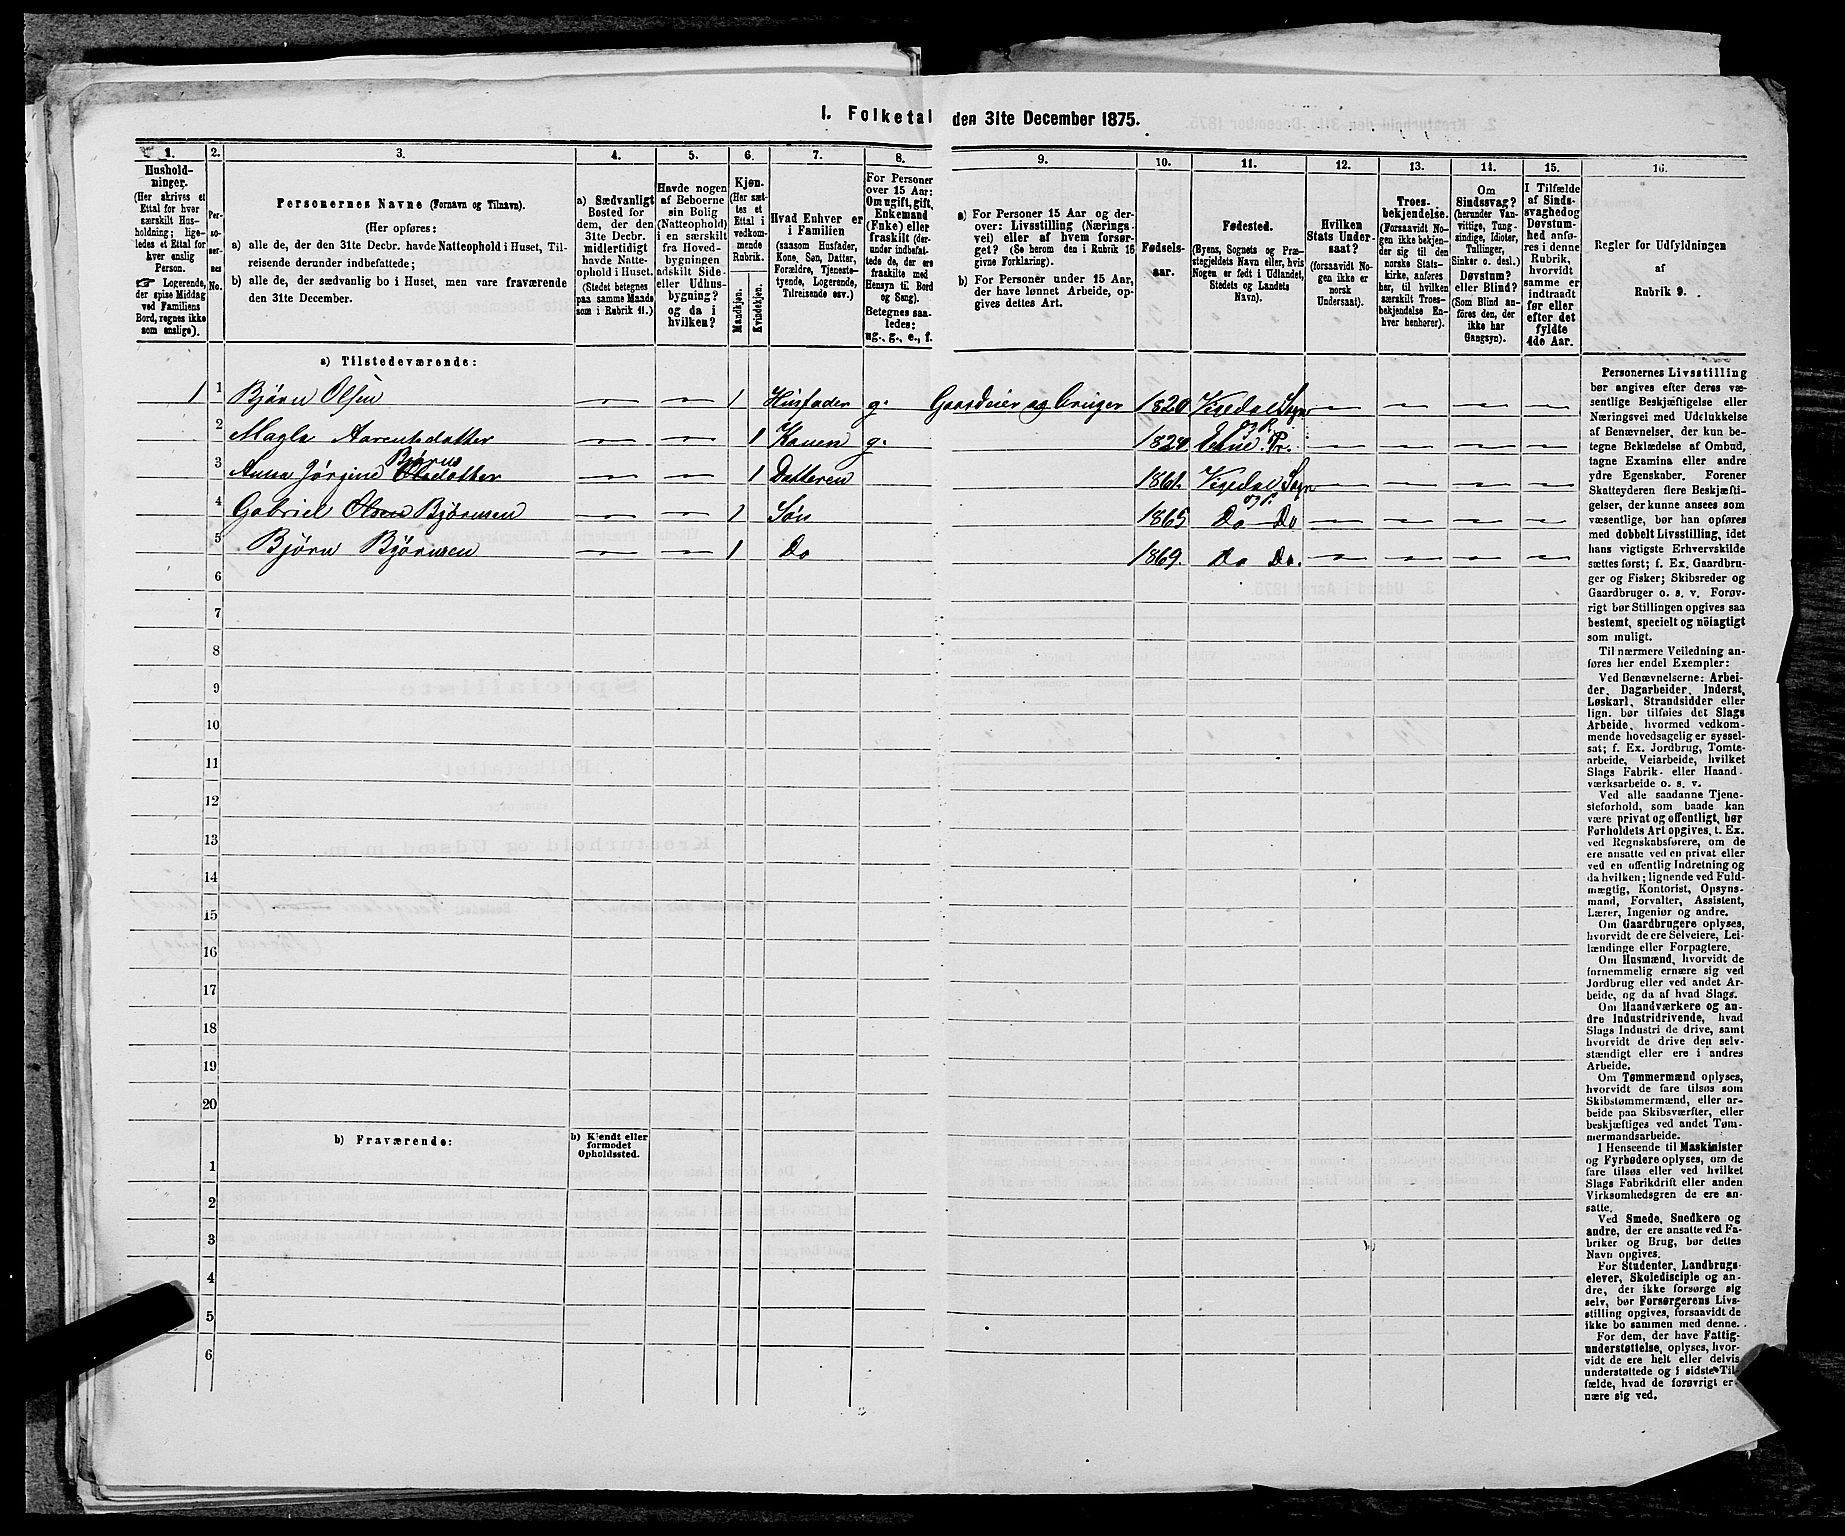 1. Folketal den 31te December 1875.
1. 2. 3. 4. 5. 6. 7. 8. 9. 10. 11. 12. 13. 14. 15. 16.
Hushold-
ninger.
(Her skrives et
Ettal for hver
særskilt Hus-
holdning; lige-
ledes et Ettal for
hver enslig
Person.
☞ Logerende,
der spise Middag
ved Familiens
Bord, regnes ikke
som enslige).
Per-
so-
ner-
nes
No.
Personernes Navne (Fornavn og Tilnavn).
(Her opføres:
a) alle de, der den 31te Decbr. havde Natteophold i Huset, Til-
reisende derunder indbefattede;
b) alle de, der sædvanlig bo i Huset, men vare fraværende
den 31te December.
a) Sædvanligt
Bosted for
dem, der den
31te Decbr.
midlertidigt
havde Natte-
ophold i Huset.
(Stedet betegnes
paa samme Maade
som i Rubrik 11.)
Havde nogen
af Beboerne
sin Bolig
(Natteophold)
i en særskilt
fra Hoved-
bygningen
adskilt Side-
eller Udhus-
bygning?
og da i
hvilken?
Kjøn.
(Her sæt-
tes et
Ettal i
vedkom-
mende
Rubrik.
Mandkjøn.
Kvindekjøn.
Hvad Enhver er
i Familien
(saasom Husfader,
Kone, Søn, Datter,
Forældre, Tjeneste-
tyende, Logerende,
Tilreisende osv.)
For Personer
over 15 Aar:
Om ugift, gift,
Enkemand
(Enke) eller
fraskilt (der-
under indbefat-
tede de, der ere
fraskilte med
Hensyn til Bord
og Seng).
Betegnes saa-
ledes:
ug., g., e., f.
a) For Personer 15 Aar og der-
over: Livsstilling (Nærings-
vei) eller af hvem forsør-
get? (Se herom den i Rubrik 16
givne Forklaring).
b) For Personer under 15 Aar,
der have lønnet Arbeide, op-
gives dettes Art.
Fødsels-
aar.
Fødested.
(Byens, Sognets og Præ-
stegjeldets Navn eller, hvis
Nogen er født i Udlandet,
Stedets og Landets
Navn).
Hvilken
Stats Under-
saat?
(forsaavidt No-
gen ikke er
norsk
Undersaat).
Troes-
bekjendelse.
(Forsaavidt No-
gen ikke bekjen-
der sig til den
norske Stats-
kirke, anføres
her, til hvilken
særskilt Troes-
bekjendelse En-
hver henhører).
Om
Sindssvag?
(herunder Van-
vittige, Tung-
sindige, Idioter,
Tullinger,
Sinker o. desl.)
Døvstum?
eller Blind?
(Som Blind an-
føres den, der
ikke har
Gangsyn).
I Tilfælde
af Sinds-
svaghedog
Døvstum-
hed anfø-
res i denne
Rubrik,
hvorvidt
samme er
indtraadt
før eller
efter det
fyldte
4de Aar.
Regler for Udfyldningen
af
Rubrik 9.
a) Tilstedeværende:
1 1 Bjørn Olsen — — 1 Husfader g. Gaardeier og bruger 1820 Vigedal Sogn og P. — — — —
2 Magla Aarentsdatter — — 1 Konen g. 1824 Etne Pr. — — — —
3 Anna Jørgine Bjørns Olsdatter — — 1 Datteren 1861. Vigedal Sogn og P. — — — —
4 Gabriel Olsen Bjørnsen — — 1 Søn 1865 Do Do — — — —
5 Bjørn Bjørnsen — — 1 Do 1869. Do Do. — — — —
6
7
8
9
10
11
12
13
14
15
16
17
18
19
20
b) Fraværende:
b) Kjendt eller
formodet
Opholdssted.
1
2
3
4
5
6
Personernes Livsstilling
bør angives efter deres væ-
sentlige Beskjæftigelse eller
Næringsvei med Udelukkelse
af Benævnelser, der kun be-
tegne Beklædelse af Ombud,
tagne Examina eller andre
ydre Egenskaber. Forener
Skatteyderen flere Beskjæfti-
gelser, der kunne ansees som
væsentlige, bør han opføres
med dobbelt Livsstilling, idet
hans vigtigste Erhvervskilde
sættes først; f. Ex. Gaardbru-
ger og Fisker; Skibsreder og
Gaardbruger o. s. v. Forøv-
rigt bør Stillingen opgives saa
bestemt, specielt og nöiagtigt
som muligt.
Til nærmere Veiledning an-
føres her endel Exempler:
Ved Benævnelserne: Arbei-
der, Dagarbeider, Inderst,
Løskarl, Strandsidder eller
lign. bør tilføies det Slags
Arbeide, hvormed vedkom-
mende hovedsagelig er syssel-
sat; f. Ex. Jordbrug, Tomte-
arbeide, Veiarbeide, hvilket
Slags Fabrik- eller Haand-
værksarbeide o. s. v.
Ved alle saadanne Tjene-
steforhold, som baade kan
være privat og offentligt, bør
Forholdets Art opgives, t. Ex.
ved Regnskabsførere, om de
ere ansatte ved en privat eller
ved en offentlig Indretning og
da hvilken; lignende ved Fuld-
mægtig, Kontorist, Opsyns-
mand, Forvalter, Assistent,
Lærer, Ingeniør og andre.
Om Gaardbrugere oplyses,
hvorvidt de ere Selveiere, Lei-
lændinge eller Forpagtere.
Om Husmænd, hvorvidt de
fornemmelig ernære sig ved
Jordbrug eller ved andet Ar-
beide, og da af hvad Slags.
Om Haandværkere og an-
dre Industridrivende, hvad
Slags Industri de drive, samt
hvorvidt de drive den selv-
stændigt eller ere i andres
Arbeide.
Om Tømmermænd oplyses,
hvorvidt de fare tilsøs som
Skibstømmermænd, eller ar-
beide paa Skibsværfter, eller
beskjæftiges ved andet Tøm-
mermandsarbeide.
I Henseende til Maskinister
og Fyrbødere oplyses, om de
fare tilsøs eller ved hvilket
Slags Fabrikdrift eller anden
Virksomhedsgren de ere an-
satte.
Ved Smede, Snedkere og
andre, der ere ansatte ved Fa-
briker og Brug, bør dettes
Navn opgives.
For Studenter, Landbrugs-
elever, Skoledisciple og an-
dre, der ikke forsørge sig
selv, bør Forsørgerens Livs-
stilling opgives, forsaavidt de
ikke bo sammen med denne.
For dem, der have Fattig-
understøttelse, oplyses, hvor-
vidt de ere helt eller delvis
understøttede og i sidste Til-
fælde, hvad de forøvrigt er-
nære sig ved.